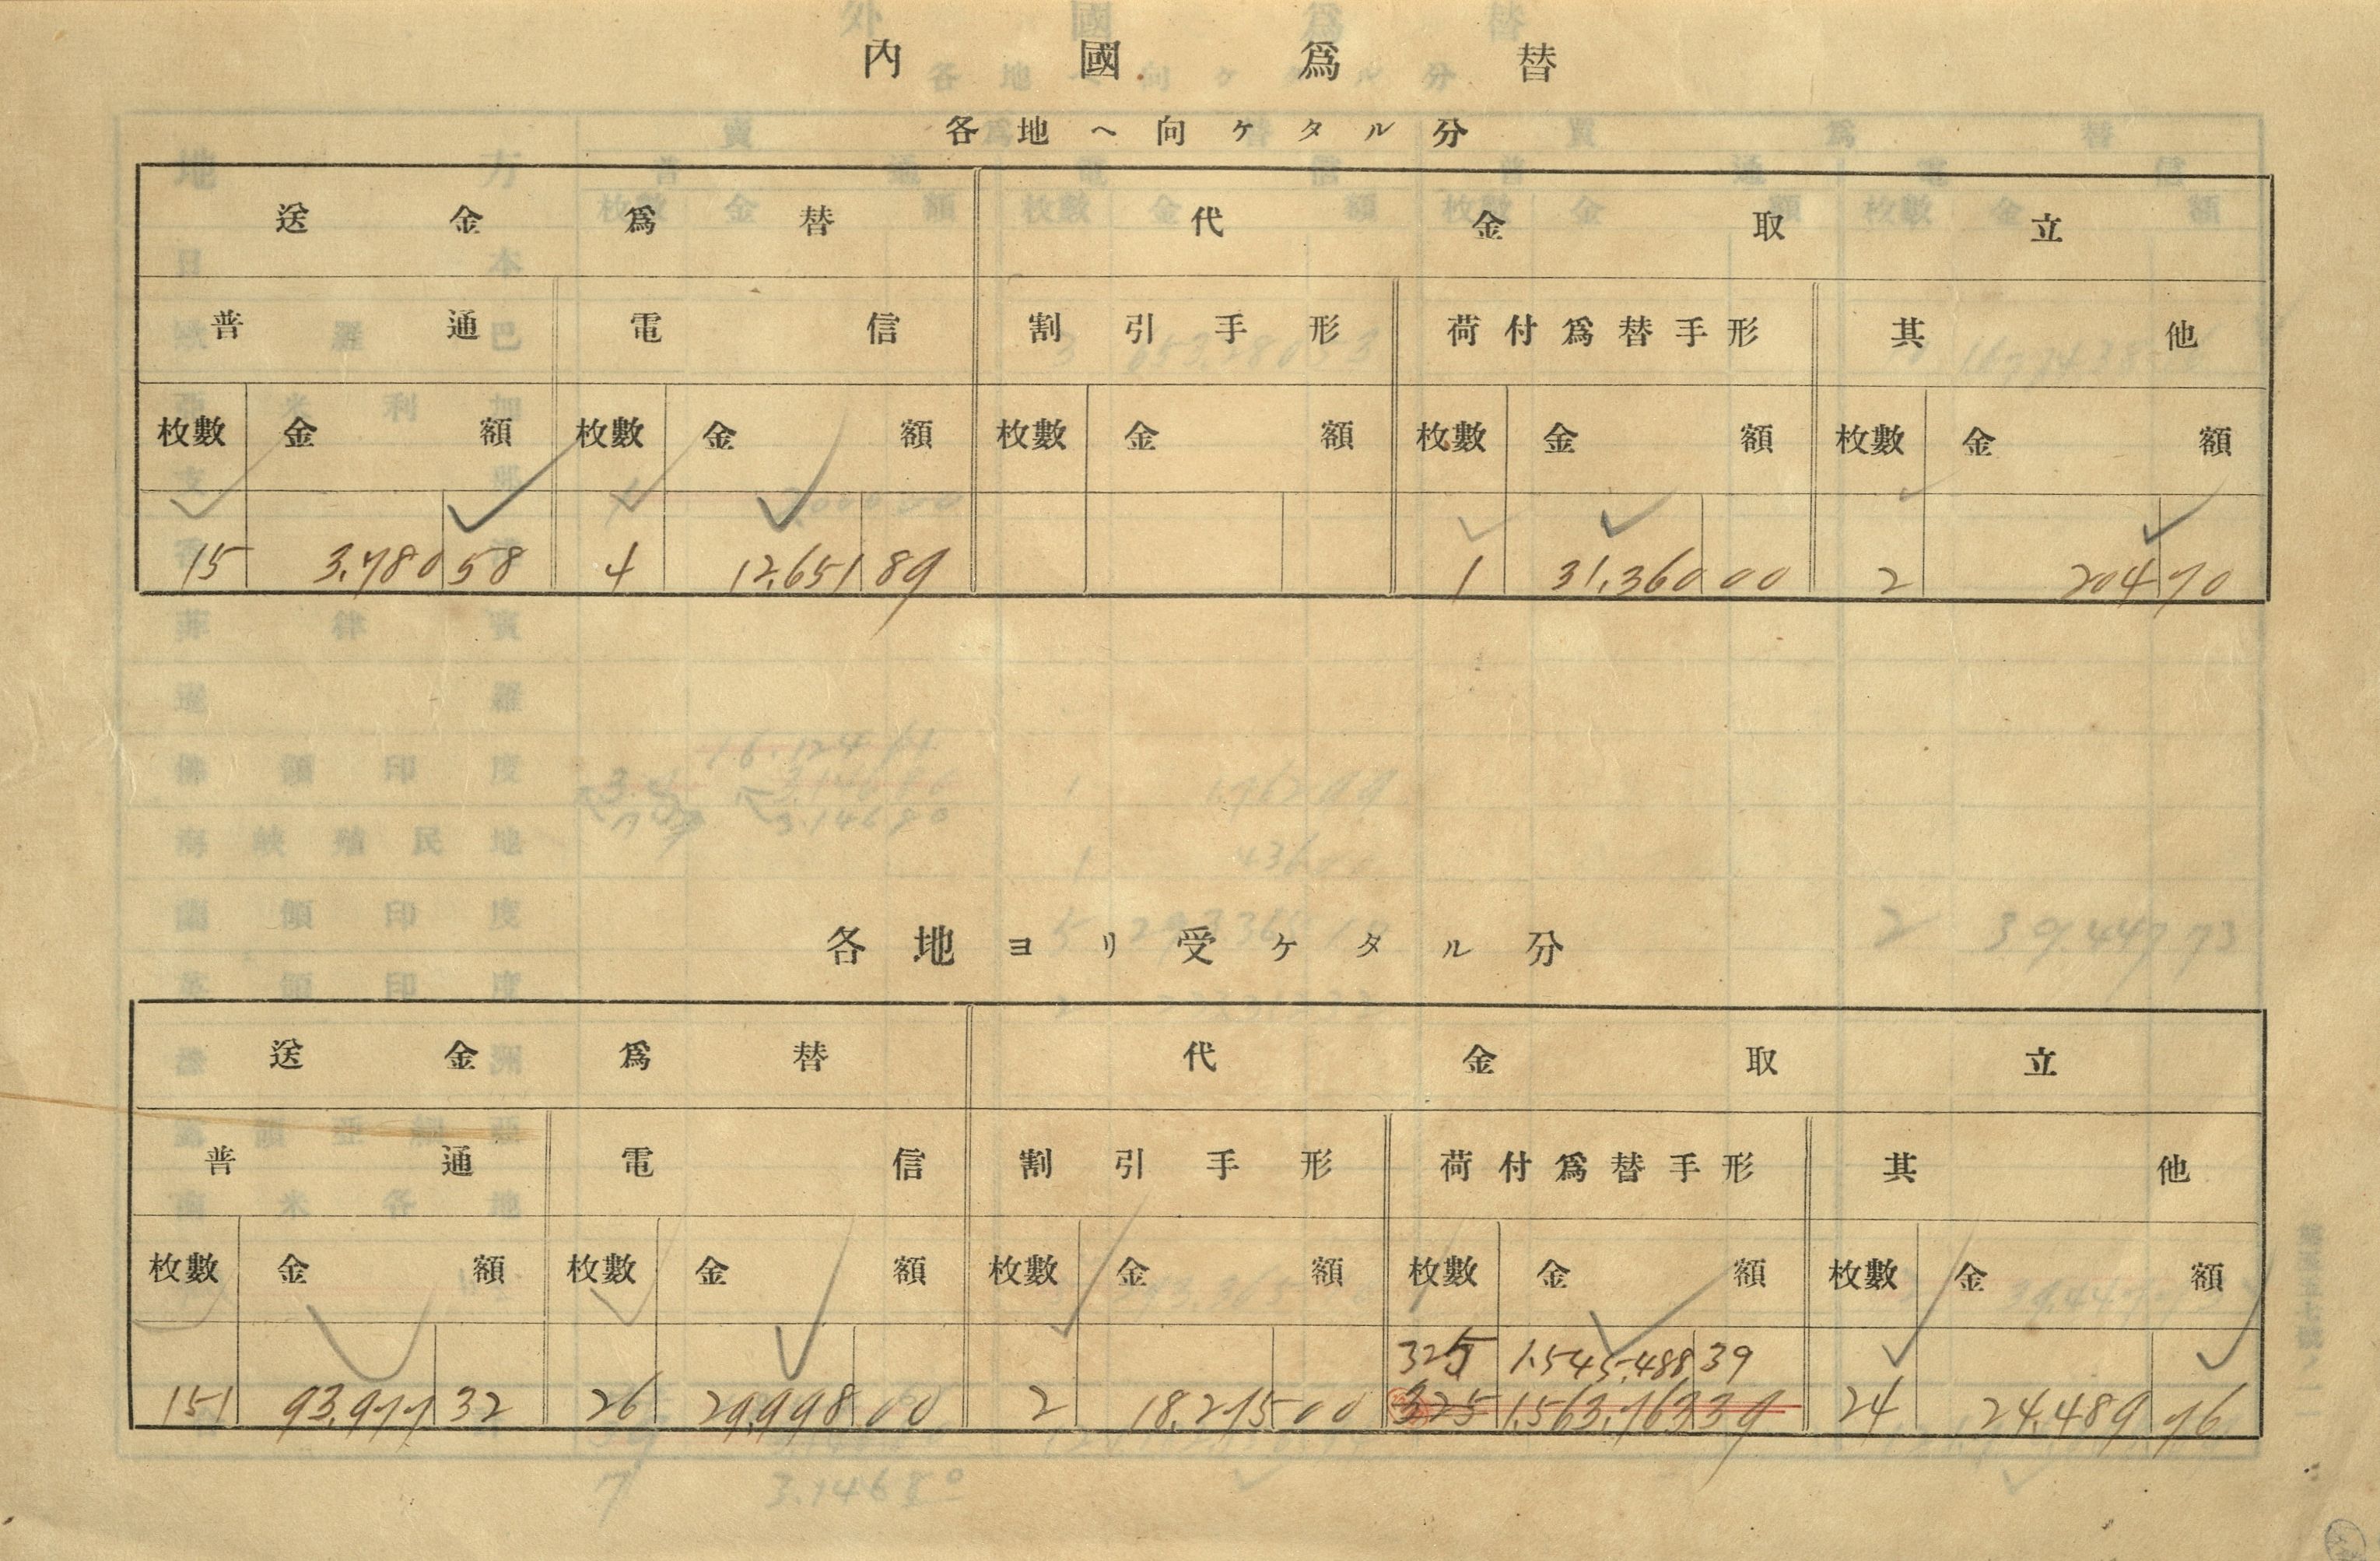 內國爲替
各地ヘ向ケタル分
送金爲替 代金取立
普通 電信 割引手形 荷付爲替手形 其他
枚數 金額 枚數 金額 枚數 金額 枚數 金額 枚數 金額
15 3,780 58 4 12,651 89 1 31,360 00 2 204 70
各地ヨリ受ケタル分
送金爲替 代金取立
普通 電信 割引手形 荷付爲替手形 其他
枚數 金額 枚數 金額 枚數 金額 枚數 金額 枚數 金額
325 1,545,488 39
151 93,977 32 26 29,998 00 2 18,275 00 325 1,563,763 39 24 24,489 76